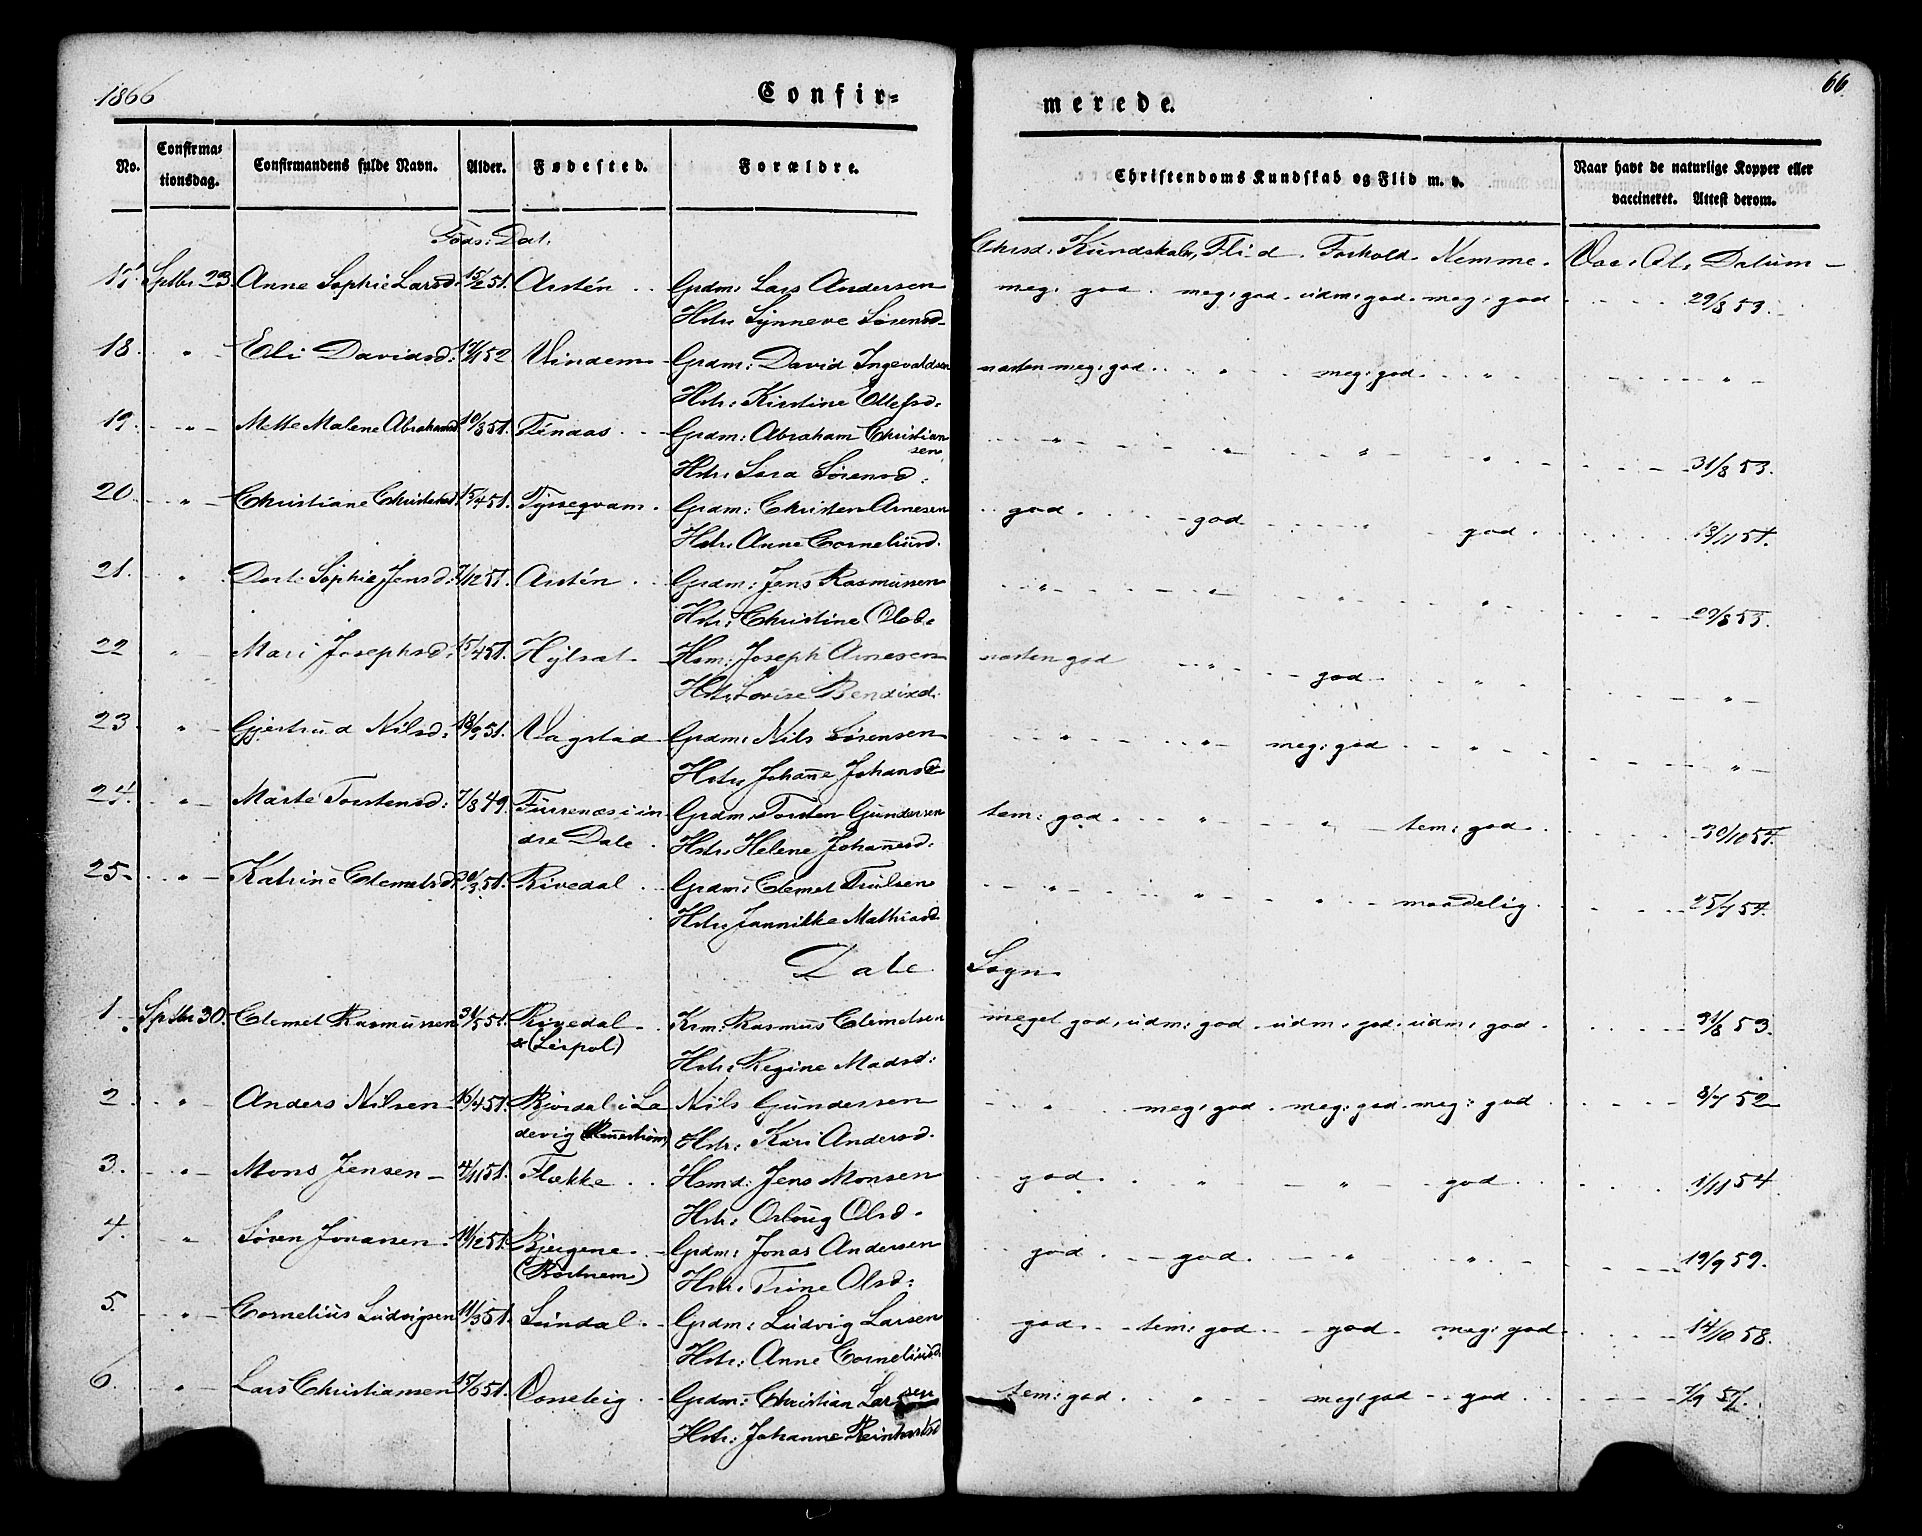 1866
66.
Confir-
merede.
No.
Confirma-
tionsdag.
Confirmandens fulde Navn.
Alder.
Fødested.
Forældre.
Christendoms Kundskab og Flid m. v.
Naar havt de naturlige Kopper eller
vaccineret. Attest derom.
Føds: Dat.
Chrsd: Kundskab, Flid. Forhold. Nemme. Vac: At, Datum
17. Sptbr 23. Anne Sophie Larsd: 15/2 51. Arstén Grdm: Lars Andersen meg: god. meg: god. udm: god. meg: god 29/8 53.
Hstr: Synneve Sørensd.
18. " Eli Davidsd: 52 Vindem Grdm: David Ingevaldsen næsten meg: god. " meg: god. " "
Hstr: Kirstine Ellefsd:
19. " Mette Malene Abrahamsd 10/8 51. Téndas Grdm: Abraham Christian " " " " 31/8 53.
sen
Hstr: Sara Sørensd:
20. " Christiane Christensd 15/4 51. Tysseqvam. Grdm: Christen Arnesen god. god god. 13/11 54.
Hstr: Anne Corneliusd.
21. " Dorte Sophie Jensd: 7/12 51. Arstén Grdm: Jens Rasmussen " " " " 29/8 53.
Hstr: Christine Olsd.
22 " Mari Josephsd: 15/4 51. Hylsæt Hsm: Joseph Arnesen næsten god " god " "
Hstr: Lovise Bendixd:
23. " Gjertrud Nilsd: 18/9 51. Vagstad Grdm: Nils Sørensen " " meg: god " "
Hstr: Johanne Johansd
24. " Märte Torstensd: 7/8 49. Fürrenæs i in Grdm: Torsten Gundersen tem: god. " " tem: god 30/10 54.
dre Dale. Hstr: Helene Johannesd:
25. " Katrine Clemetsd: 51. Rivedal Grdm: Clemet Trulsen " " " maadelig. 25/7 54.
Hstr: Jannikke Mathiasd
Dale Sogn
1. Sptbr 30. Clemet Rasmussen 31/5 51. Rivedal Krm: Rasmus Clemetsen meget god, udm: god. udm: god. udm: god. 31/8 53.
(Leipol) Hstr: Regine Madsd:
2. " Anders Nilsen 16/4 51. Rivedal i La Nils Gundersen " meg: god. meg: god. meg: god 8/7 52
devig Hstr: Kari Andersd.
3. " Mons Jensen 4/11 51. Flække Hsmd: Jens Monsen god. " " god. 1/11 54
Hstr: Oslaug Olsd.
4. " Søren Jonassen. 11/12 51. Bjergene Grdm: Jonas Andersen god. god. " " 19/9 59.
Hstr: Trine Olsd:
5. " Cornelius Ludvigsen 11/3 51. Sündal Grdm: Ludvig Larsen god. tem: god. god. meg: god. 14/10 58.
Hstr: Anne Corneliusd.
6. " Lars Christiansen 15/6 51. Vasseleig Grdm: Christian Larsen tem: god. " meg: god god. 7/9 57.
Hstr: Johanne Reinhartsd